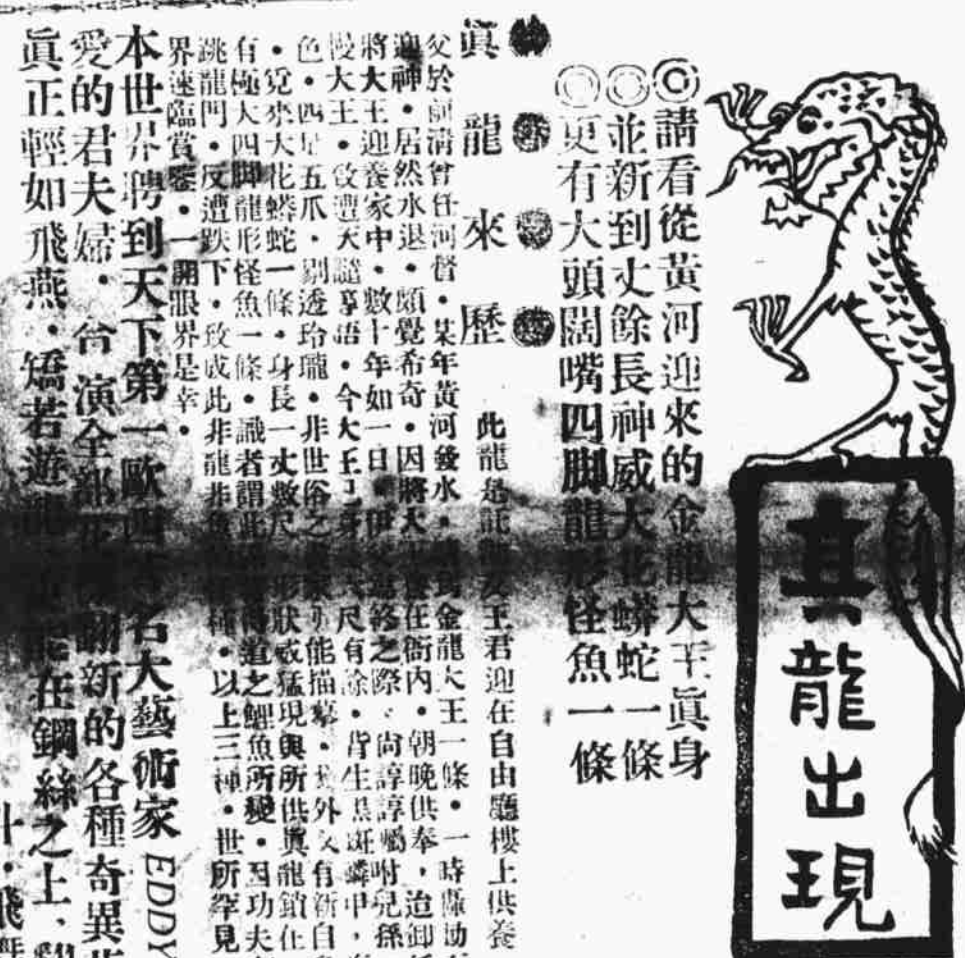 真龍出現
◎請看從黃河迎來的金龍大王眞身
◎並新到丈餘長神威大花蟒蛇一條
◎更有大頭闊嘴四脚龍形怪魚一條
眞龍來歷
此龍是 王君迎在自由廳樓上供養
父於前清曾任河督・某年黃河發水・ 金龍大王一條・一時轟動
迎神・居然水退・頗覺希奇・因將大 在衙內・朝晚供奉，迨卸
將大王迎養家中・數十年如一日・ 之際・尚諄諄囑咐兒孫
慢大王・致遭天譴等語・今大王 尺有餘・背生黑斑鱗甲，
色・四足五爪・剔透玲瓏・非世俗之 能描摹・此外又有新自
・覓來大花蟒蛇一條・身長一丈數尺 形狀威猛現與所供眞龍鎖在
有極大四脚龍形怪魚一條・識者謂此 得道之鯉魚所變・因功夫
跳龍門・反遭跌下・致成此非龍非魚 ・以上三種・世所罕見
界速臨賞鑒・一開眼界是幸・
本世界聘到天下第一歐西 名大藝術家 EDDY
愛的君夫婦・合演全部 翻新的各種奇異
眞正輕如飛燕・矯若遊 能在鋼絲之上、
飛